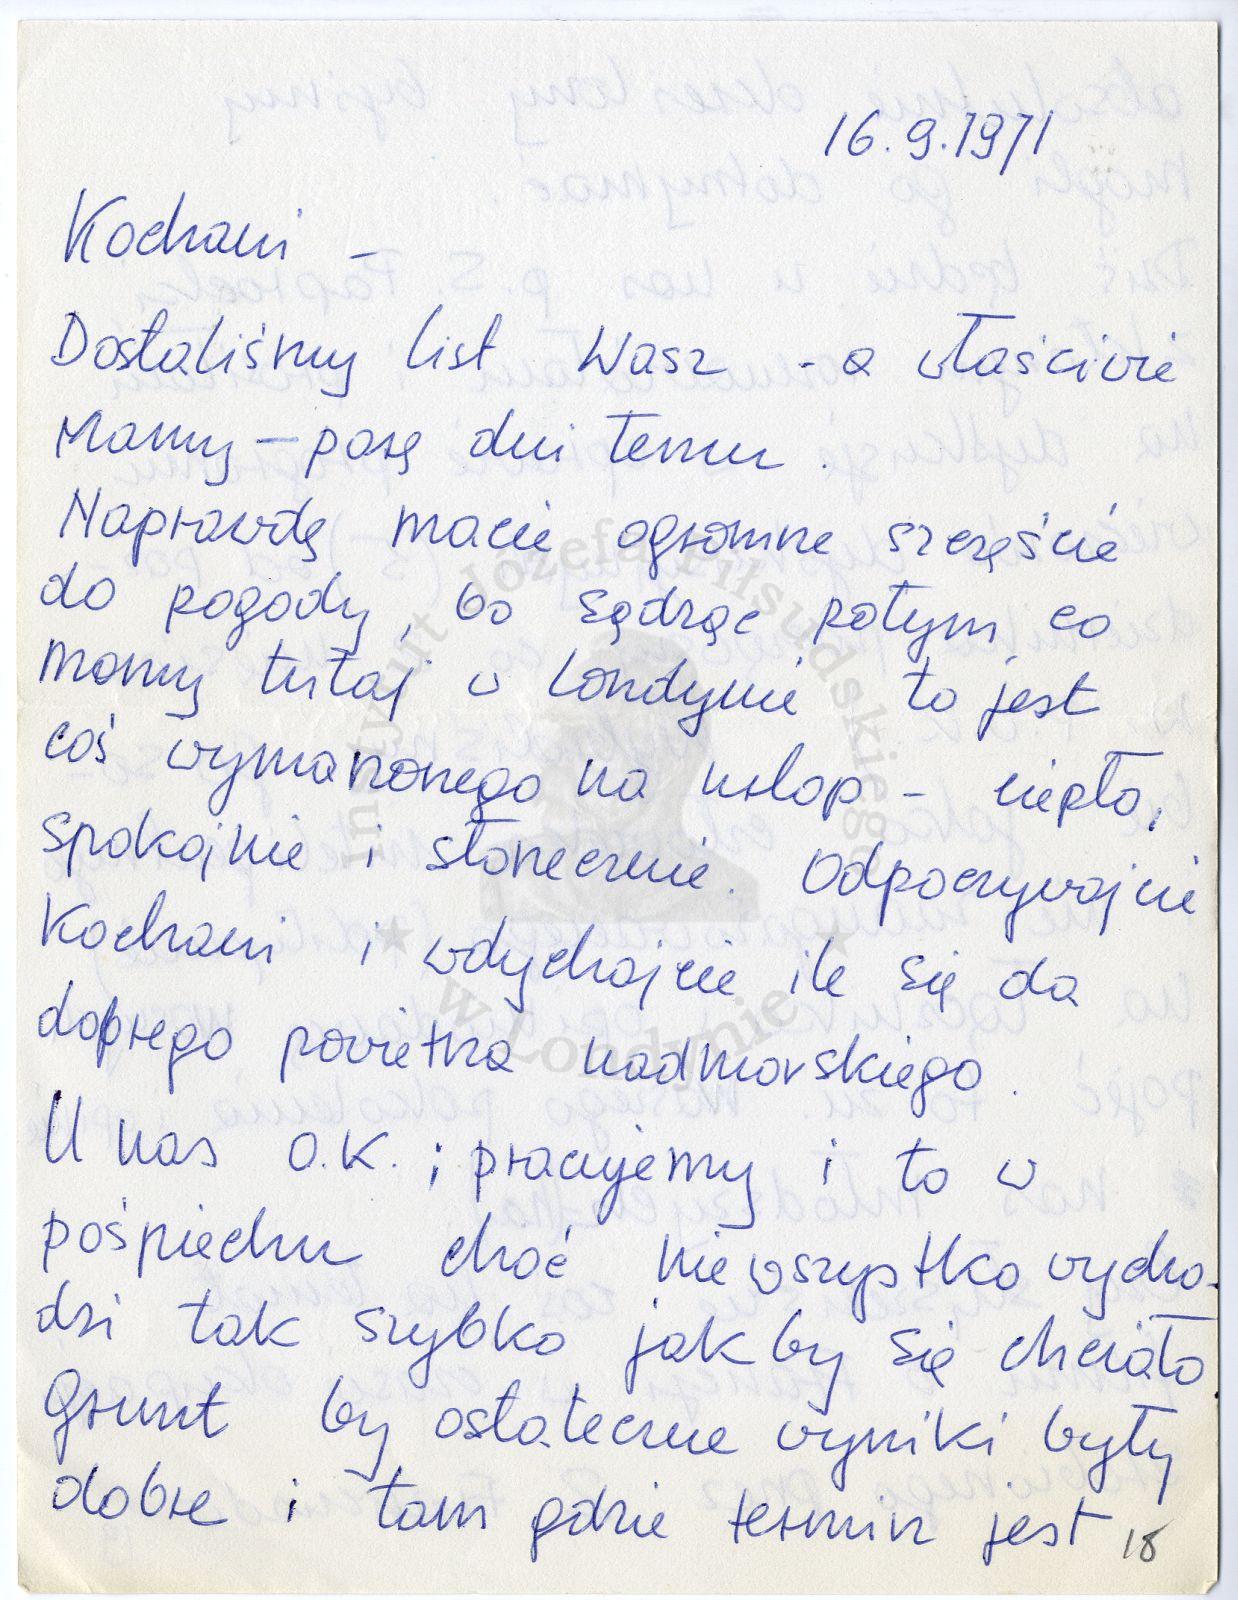 16.9.1971
Kochani –
Dostaliśmy list Wasz - a właściwie
Mamy – parę dni temu.
Naprawdę macie ogromne szczęście
do pogody, bo sądząc potym co
mamy tutaj w Londynie to jest
coś wymarzonego na urlop – ciepło,
spokojnie i słonecznie. Odpoczywajcie
Kochani i wdychajcie ile się da
dobrego powietrza nadmorskiego.
U nas O.K.; pracujemy i to w
pośpiechu choć niewszystko wycho-
dzi tak szybko jakby się chciało.
Grunt by ostateczne wyniki były
dobre i tam gdzie termin jest
18
Instytut Józefa Piłsudskiego
w Londynie